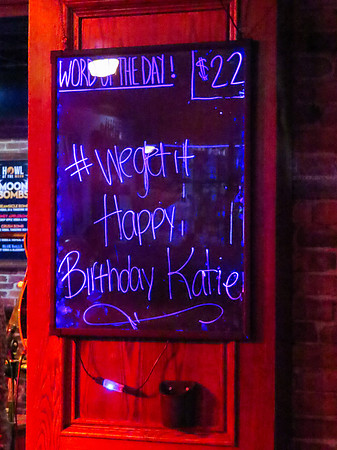 WORD OF THE DAY!
$22
#wegetit
Happy
Birthday Katie
HOWL
AT THE MOON
MOON
BOMBS